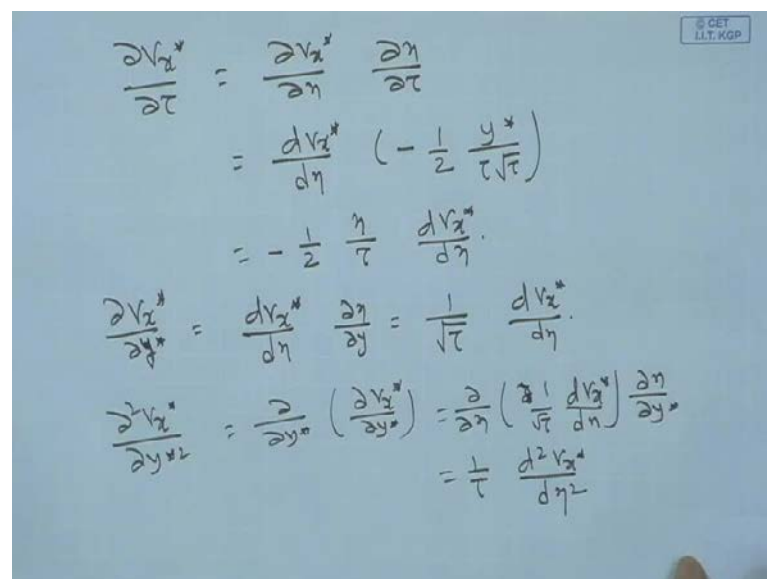 © CET
I.I.T. KGP
∂Vx*/∂τ = ∂Vx*/∂η ∂η/∂τ
= dVx*/dη (− 1/2 y*/(τ√τ))
= − 1/2 η/τ dVx*/dη.
∂Vx*/∂y* = dVx*/dη ∂η/∂y = 1/√τ dVx*/dη.
∂²Vx*/∂y*² = ∂/∂y* (∂Vx*/∂y*) = ∂/∂η (1/√τ dVx*/dη) ∂η/∂y*
= 1/τ d²Vx*/dη²